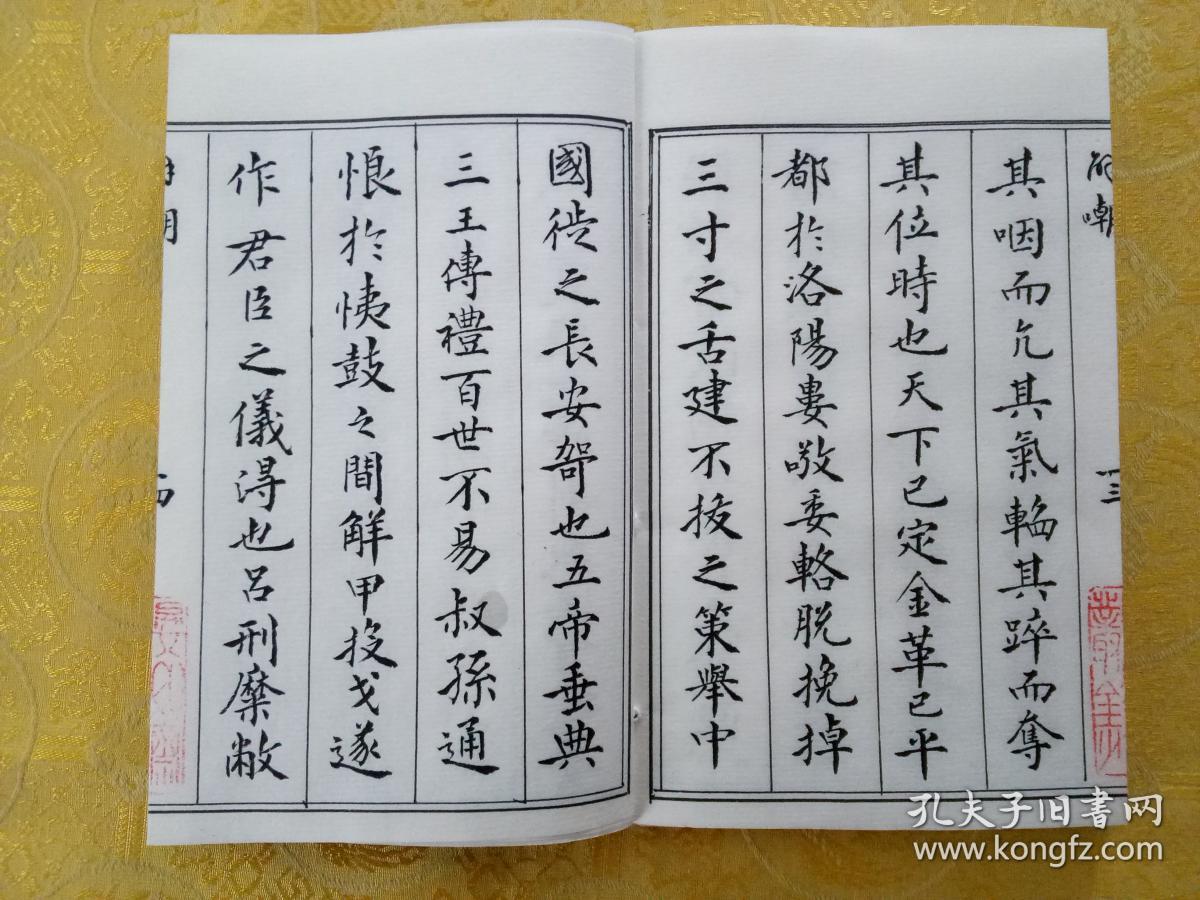 解嘲 三
其咽而亢其氣其踤而奪
其位時也天下已定金革已平
都於洛陽婁敬委輅脫挽掉
三寸之舌建不拔之策舉中
國徙之長安也五帝垂典
三王傳禮百世不易叔孫通
恨於恞鼓之間解甲投戈遂
作君臣之儀得也呂刑糜敝
孔夫子旧書网
www.kongfz.com